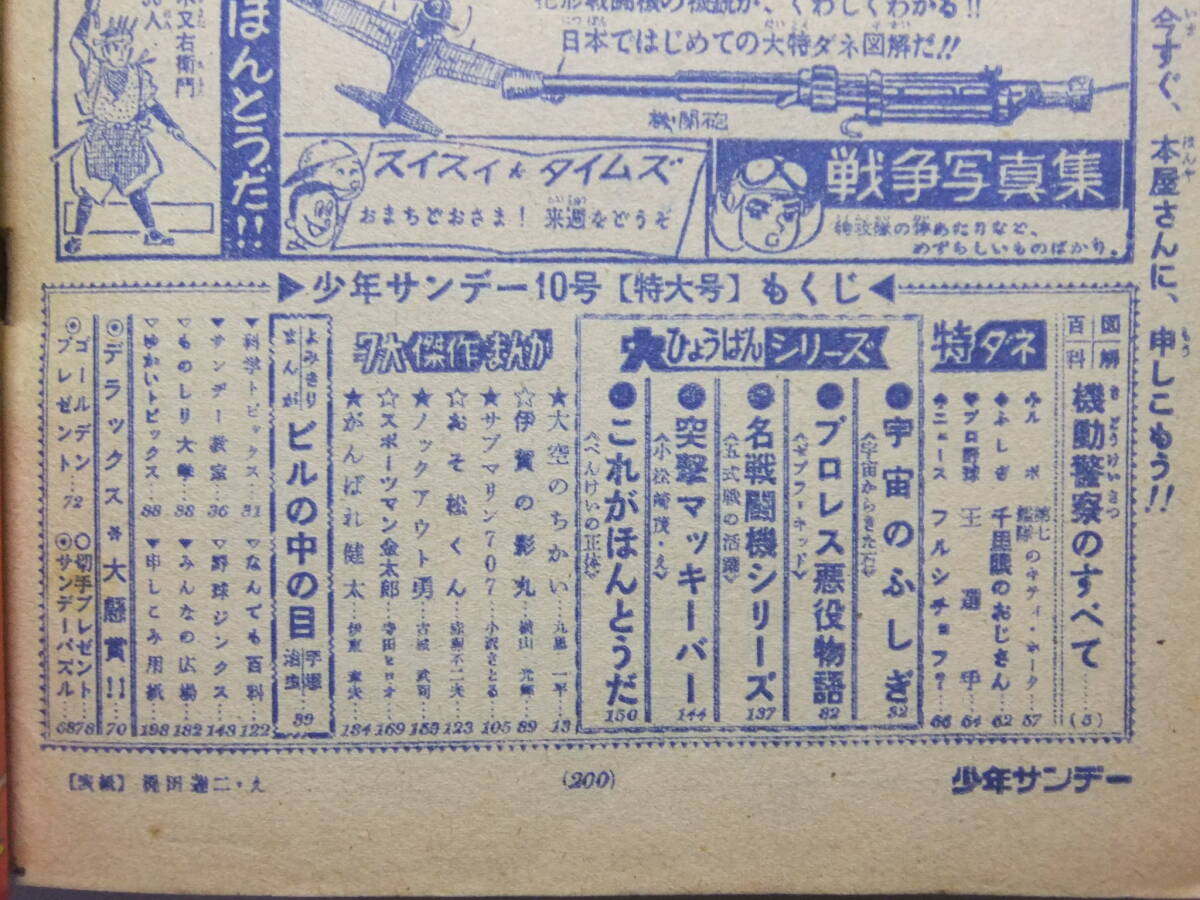 今すぐ、本屋さんに、申しこもう!!
日本ではじめての大特ダネ図解だ!!
機関砲
又右衛門
ほんとうだ!!
スイスイ★タイムズ
おまちどおさま! 来週をどうぞ
戦争写真集
めずらしいものばかり。
▶少年サンデー10号【特大号】もくじ◀
図解百科 機動警察のすべて……(5)
特ダネ
♠ふしぎ 千里眼のおじさん 62
♠プロ野球 王選手 64
♠ニュース フルシチョフ? 66
大ひょうばんシリーズ
宇宙のふしぎ《宇宙からきた石》 32
プロレス悪役物語 82
名戦闘機シリーズ《五式戦の活躍》 137
突撃マッキーバー《小松崎茂・え》 144
これがほんとうだ《べんけいの正体》 150
7大傑作まんが
★大空のちかい…九里一平…13
☆伊賀の影丸…横山光輝…89
★サブマリン707…小沢さとる…105
☆おそ松くん…赤塚不二夫…123
★ノックアウト勇…
☆スポーツマン金太郎…寺田ヒロオ…169
★がんばれ健太…184
よみきりまんが ビルの中の目 手塚治虫 39
▼科学トピックス…31
▼なんでも百科…122
▼サンデー教室…36
▽野球ジンクス…143
▽ものしり大学…38
▼みんなの広場…182
▽ゆかいトピックス…88
▼申しこみ用紙…198
◎デラックス＊大懸賞!! 70
◎ゴールデンプレゼント…72
○切手プレゼント 78
◎サンデーパズル 68
【表紙】
(200)
少年サンデー